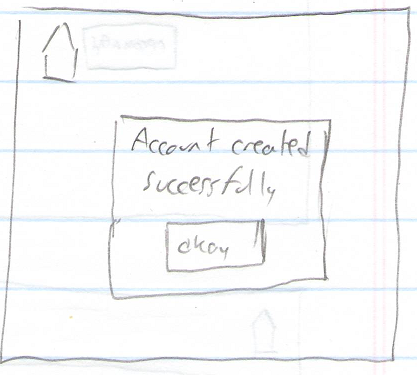 Account created
successfully
okay